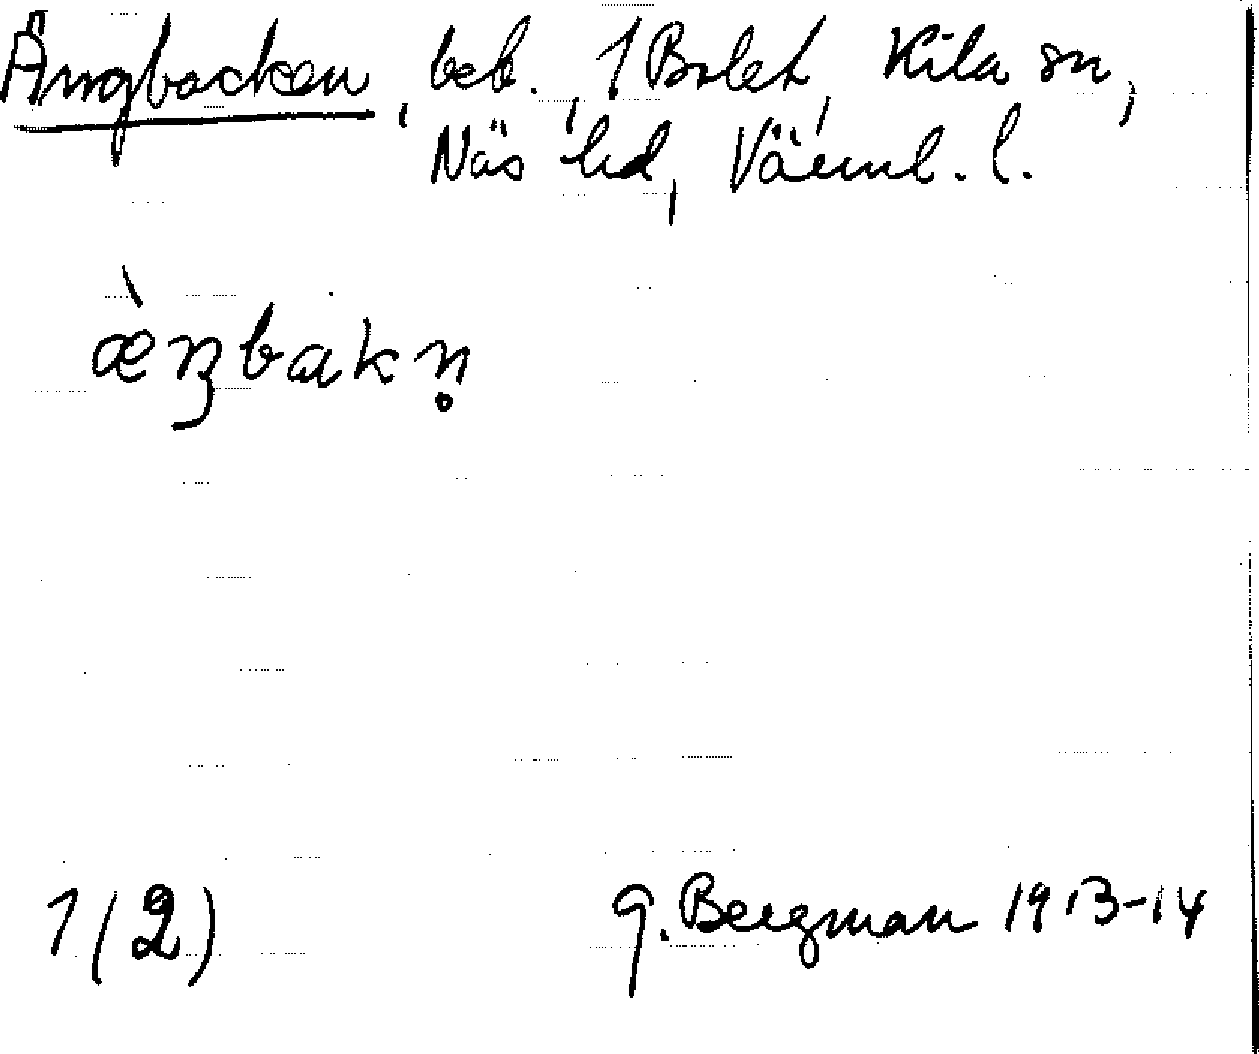 Ängbacken, beb., 1 Bolet, Kila sn,
Näs hd, Värml. l.
æ̀ŋbakn̥
1 (2)
G. Bergman 1913-14